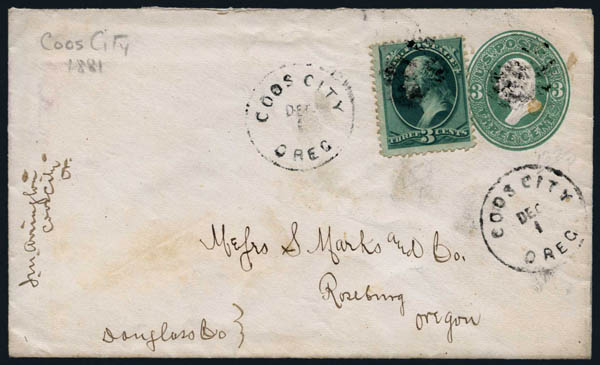 Coos City
1881
COOS CITY
DEC
OREG
U.S. POSTAGE
THREE CENTS
3
3
THREE 3 CENTS
COOS CITY
DEC
1
OREG
Coos City
Or
Messrs S Marks and Co.
Roseburg
Oregon
Douglass Co